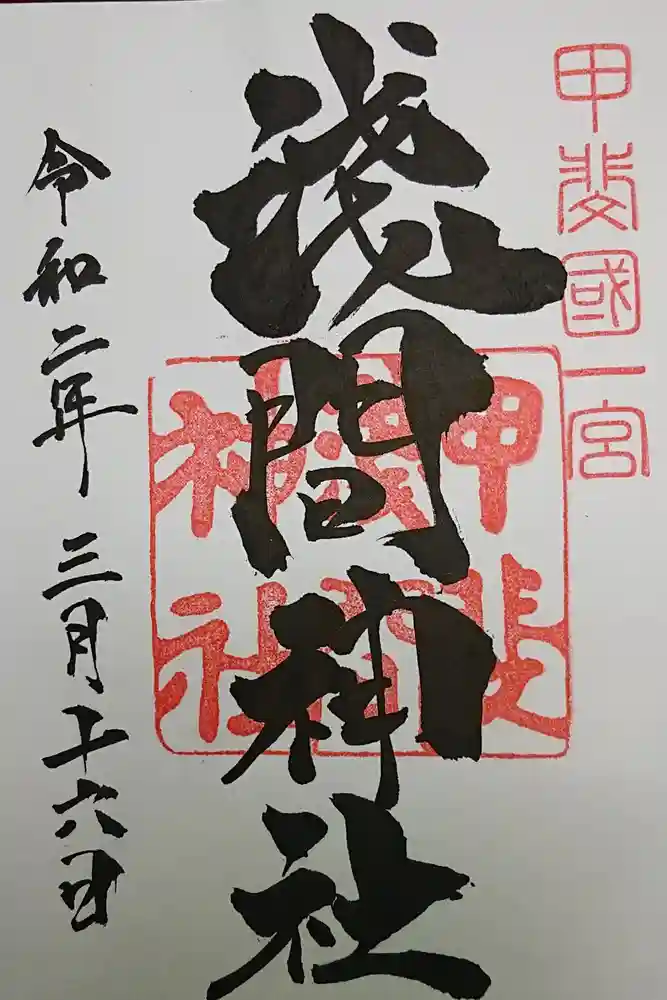 甲斐國一宮
浅間神社
甲斐
浅間
神社
令和二年三月十六日